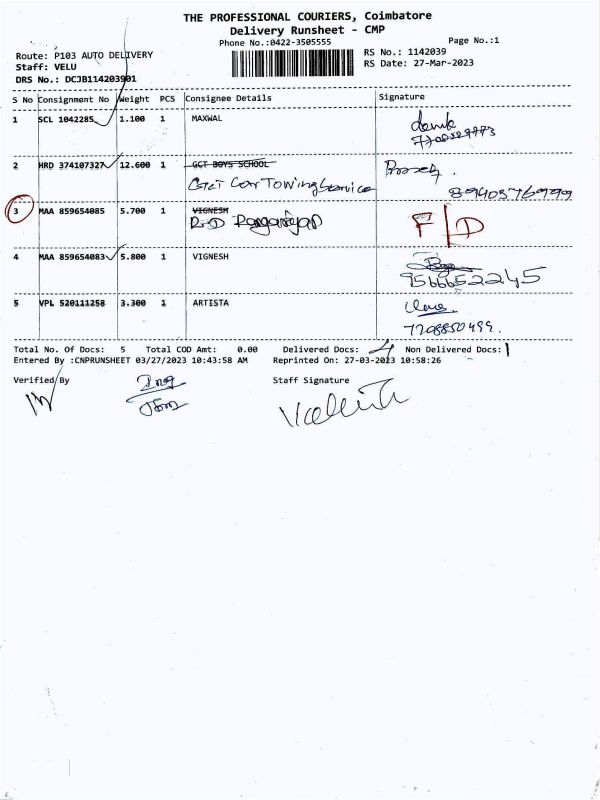 THE PROFESSIONAL COURIERS, Coimbatore
Delivery Runsheet - CMP
Phone No.:0422-3505555 Page No.:1
Route: P103 AUTO DELIVERY RS No.: 1142039
Staff: VELU RS Date: 27-Mar-2023
DRS No.: DCJB114203901
S No Consignment No Weight PCS Consignee Details Signature
1 SCL 1042285 1.100 1 MAXWAL
2 HRD 374107327 12.600 1 GCT BOYS SCHOOL
Car Towing Service
8940376999
3 MAA 859654085 5.700 1 VIGNESH
F/D
4 MAA 859654083 5.800 1 VIGNESH
9566652245
5 VPL 520111258 3.300 1 ARTISTA
7708850499.
Total No. Of Docs: 5 Total COD Amt: 0.00 Delivered Docs: 4 Non Delivered Docs: 1
Entered By :CNPRUNSHEET 03/27/2023 10:43:58 AM Reprinted On: 27-03-2023 10:58:26
Verified By Staff Signature